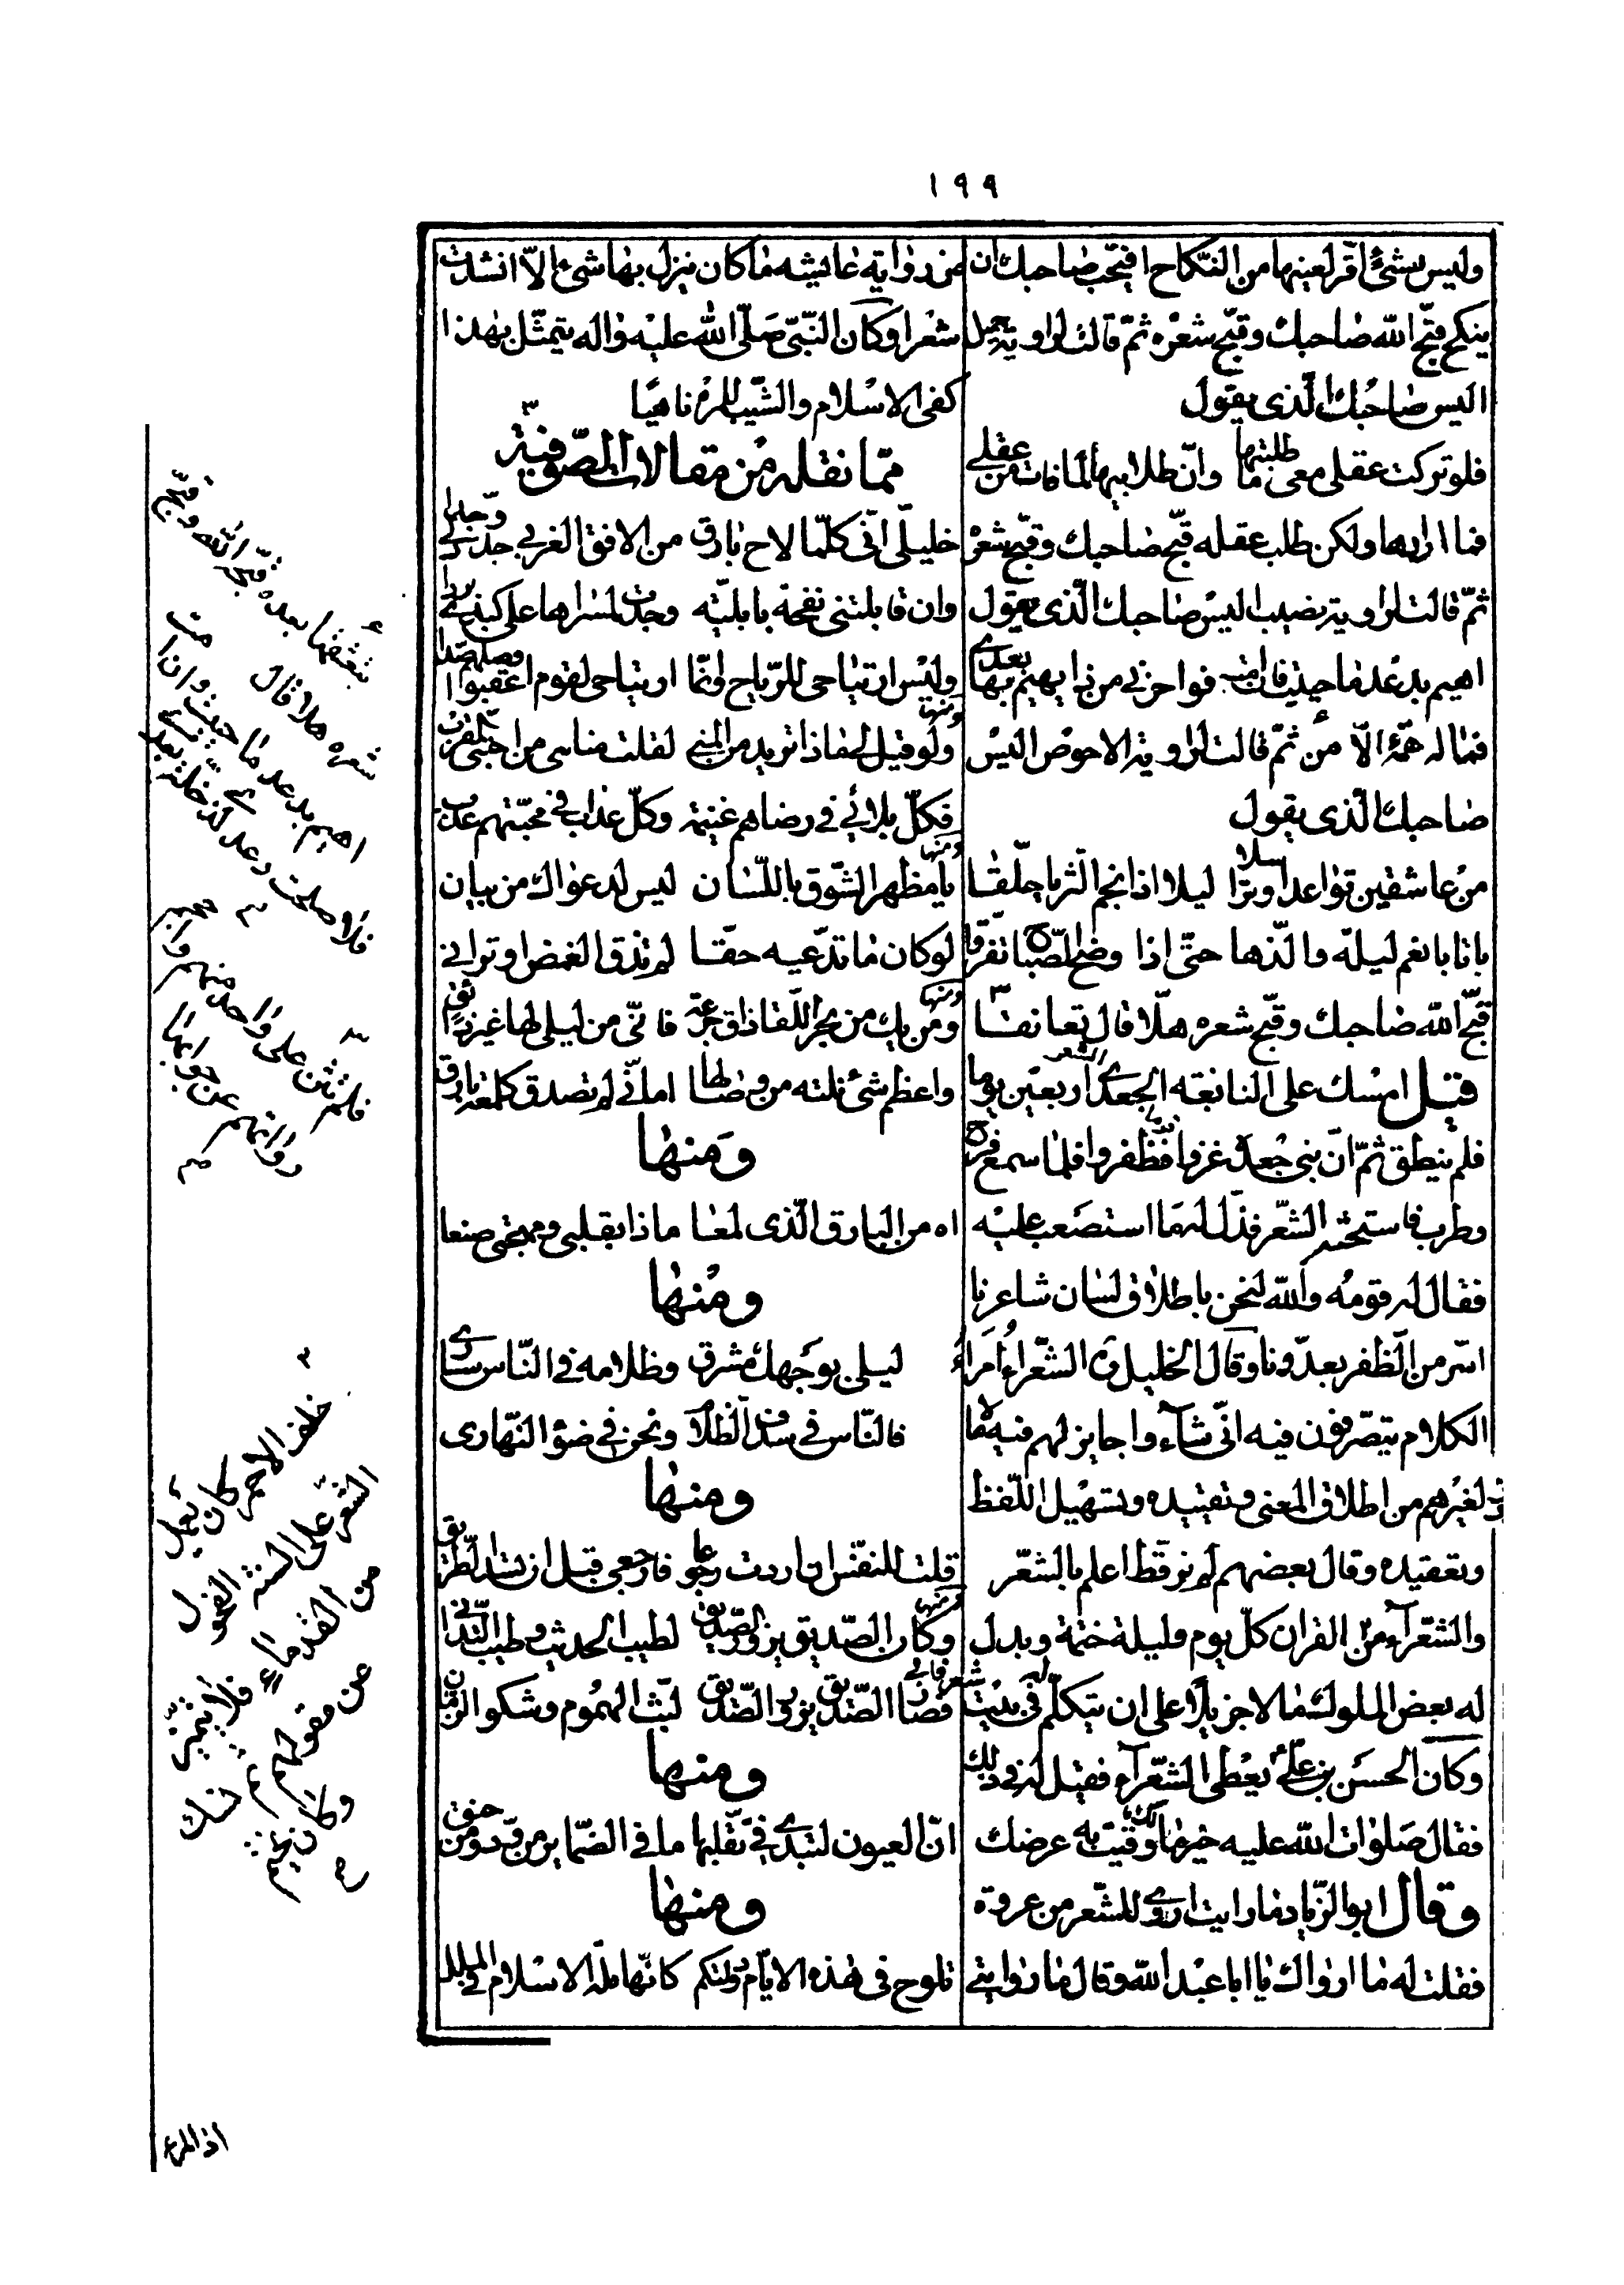 ١٩٩
وليس شئ اقر لعينها من النكاح افيحب صاحبك ان
ينكح قبح الله صاحبك وقبح شعره ثم قالت لراوية جميل
اليس صاحبك الذى يقول
فلو تركت عقلى معى ما طلبتها وان طلابيها لما فات من عقلي
فما اراها ولكن طلب عقله قبح صاحبك وقبح شعره
ثم قالت لراوية نصيب اليس صاحبك الذى يقول
اهيم بدعد ما حييت فان امت فوا حزني من ذا يهيم بها بعدي
فما له همه الا من ثم قالت لراوية الاحوص اليس
صاحبك الذى يقول
من عاشقين تواعدا وتراسلا ليلا اذا نجم الثريا حلقا
باتا بانعم ليلة والذها حتى اذا وضح الصباح تفرقا
قبح الله صاحبك وقبح شعره هلا قال تعانقا
قيل امسك على النابغة الجعدي الشعر اربعين يوما
فلم ينطق ثم ان بنى جعدة غزوا قوما فظفروا فلما سمع فرح
وطرب فاستحثه الشعر فذل له ما استصعب عليه
فقال له قومه والله لنحن باطلاق لسان شاعرنا
اسر من الظفر بعدونا وقال الخليل ره الشعراء امراء
الكلام يتصرفون فيه انى شاءوا جايز لهم فيه ما لا
لغيرهم من اطلاق المعنى وتقييده وتسهيل اللفظ
وتعقيده وقال بعضهم لم نر قط اعلم بالشعر
والشعرآء من
القران كل يوم وليلة ختمة وبذل
له بعض الملوك مالا جزيلا على ان يتكلم له في بيت شعر فابى
وكان الحسن بن علي يعطى الشعرآء فقيل له في ذلك
فقال صلوات الله عليه خير مالك ما وقيت به عرضك
وقال ابو الزياد ما رايت اروى للشعر من عروة
فقلت له ما ارواك يا ابا عبد الله وقال ما روايتي
من رواية عايشه ما كان ينزل بها شئ الا انشدت
شعرا وكان النبى صلى الله عليه واله يتمثل بهذا
كفى الاسلام والشيب للمرء ناهيا
مما نقله من مقالات الصوفية
خليلى انى كلما لاح بارق من الافق الغربي جدد لي وجدا
وان قابلتنى نفحة بابلية وجدت لمسراها على كبدي بردا
وليس ارتياحى للرياح وانما ارتياحى لقوم اعقبوا وصلهم صدا
ومنها
ولو قيل لى ماذا تريد من المنى لقلت مناى من احبتي القرب
فكل بلائي في رضاهم غنيمة وكل عذاب في محبتهم عذب
ومنها
يا مظهر الشوق باللسان ليس لدعواك من بيان
لو كان ما تدعيه حقا لم تذق الغمض او تراني
ومنها
ومن يك من بحر اللقا ذاق جرعة فانى من ليلى لها غير ذائق
واعظم شئ نلته من وصالها امانى لم تصدق كلمعة بارق
ومنها
اه من البارق الذى لمعا ماذا بقلبى ومهجتى صنعا
ومنها
ليلى بوجهك مشرق وظلامه في الناس ساري
فالناس فى سدف الظلام ونحن في ضوء النهارى
ومنها
قلت للنفس ان اردت رجوعا فارجعى قبل ان يسد الطريق
ومنها
وكان الصديق يزور الصديق لطيب الحديث وطيب التداني
فصار الصديق يزور الصديق لبث الهموم وشكوى الزمان
ومنها
ان العيون لتبدي في تقلبها ما في الضماير من ود ومن حنق
ومنها
تلوح فى هذه الايام دولتكم كانها ملة الاسلام في الملل
قبح الله وقبح
شعره هلا قال
اهيم بدعد ما حييت وان امت
فلا صلحت دعد لذى خلة بعدي
فلم تثن على واحد منهم و
رواتهم عن جوابها
خلف الاحمر كان يعمل
الشعر على السنة الفحول
من القدماء فلا يتميز
عن مقولهم
اذ المرء